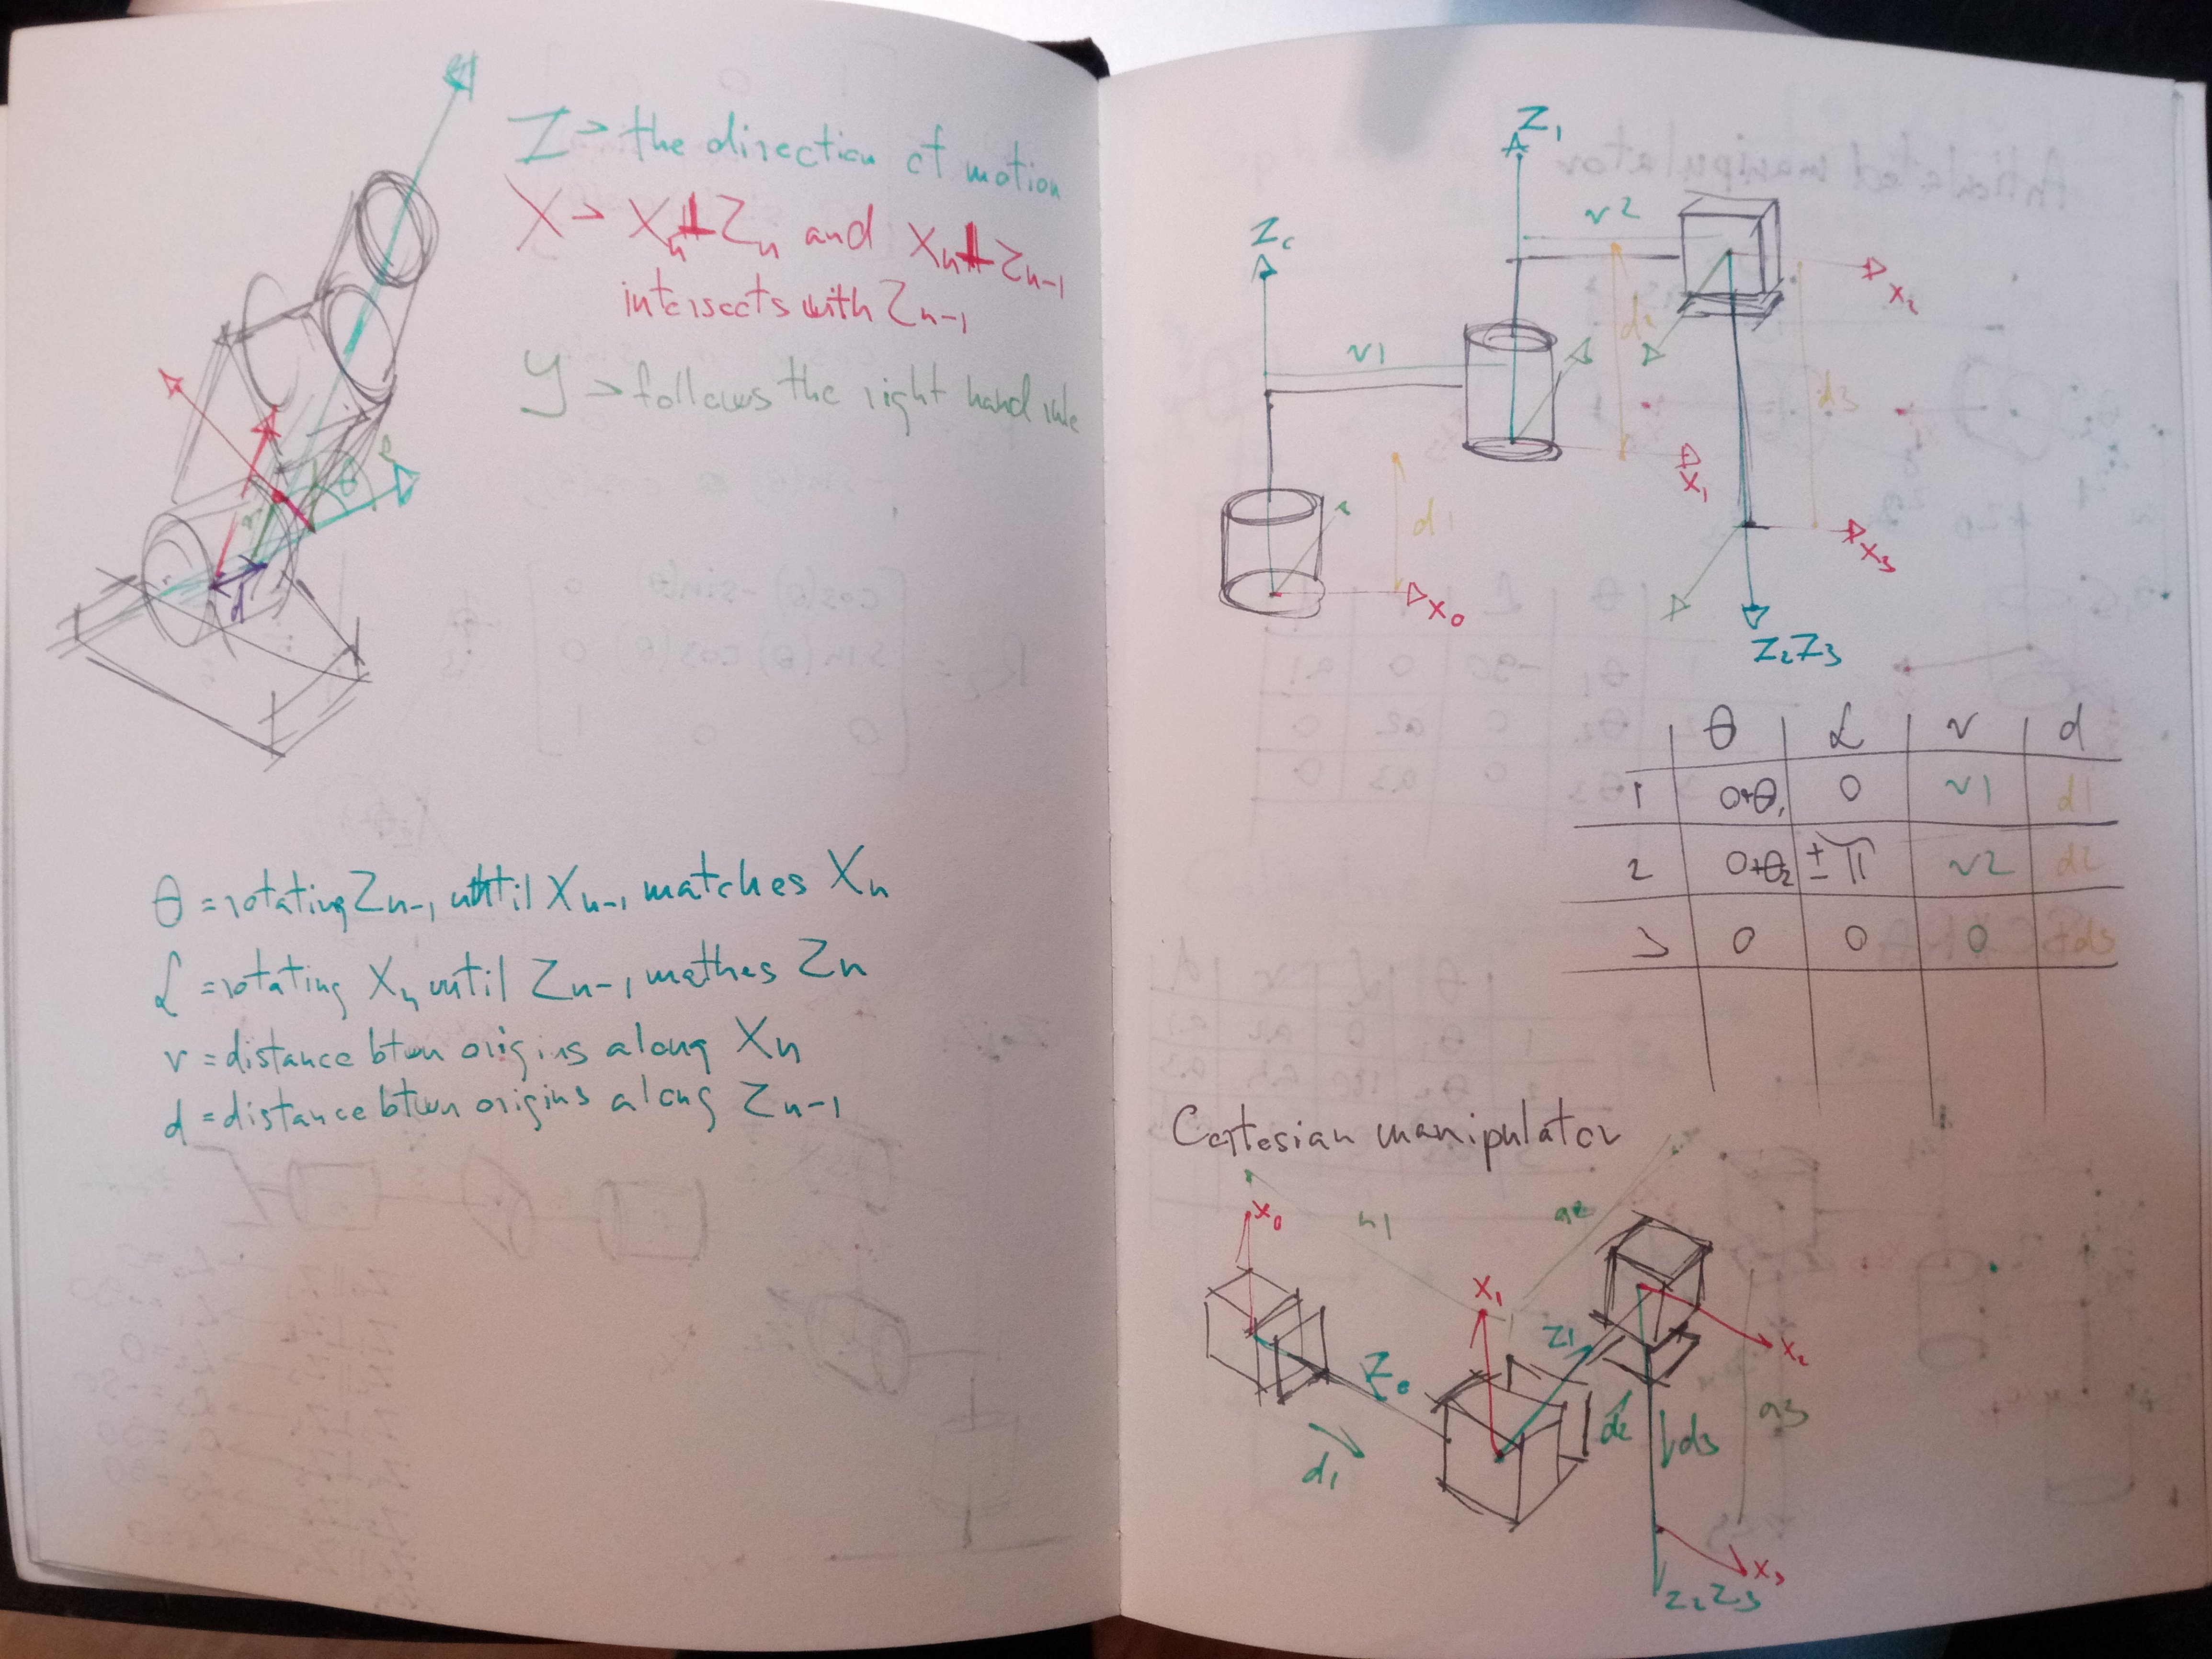 Z > the direction of motion
X > Xn ⊥ Zn and Xn ⊥ Zn-1
intersects with Zn-1
y > follows the right hand rule
θ
r
d
θ = rotating Zn-1 until Xn-1 matches Xn
α = rotating Xn until Zn-1 mathes Zn
r = distance btwn origins along Xn
d = distance btwn origins along Zn-1
Z1
r2
Z0
X2
d2
r1
d3
X1
d1
X3
X0
Z2 Z3
θ α r d
1 0+θ1 0 r1 d1
2 0+θ2 ±π r2 d2
3 0 0 0 +d3
Cartesian manipulator
X0
a1
a2
X1
Z1
X2
Z0
a3
d2
d3
d1
X3
Z2 Z3